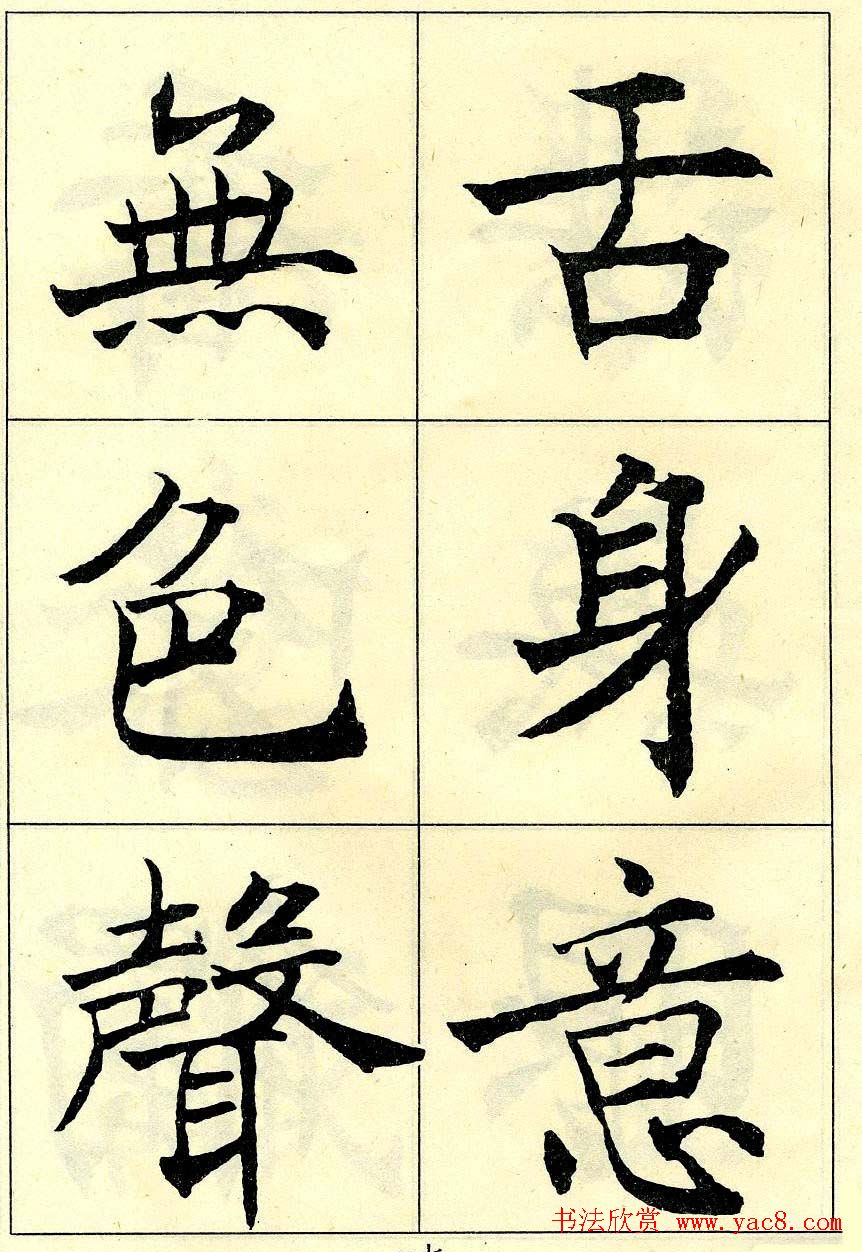 舌身意
無色聲
书法欣赏 www.yac8.com